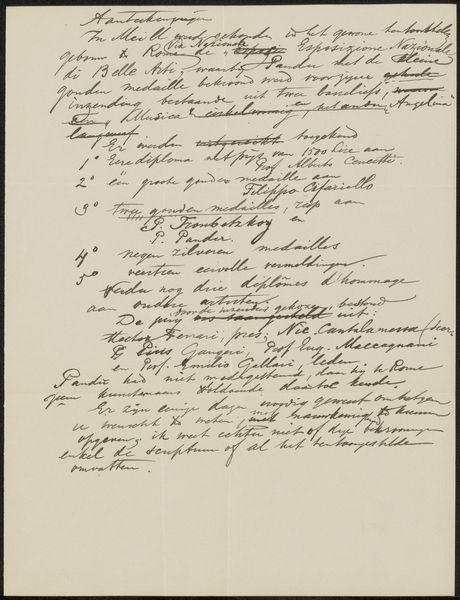 Aanteekeningen
In Mei ll. werd gehouden in het gewone tentoonstellings
gebouw te Rome de Via Nazionale Esposizione Nazionale
di Belle Arti, waarbij Pander met de kleine
gouden medaille bekroond werd voor zijne
inzending bestaande uit twee basreliefs,
"Musica" en "Angelina"
Er werden toegekend
1° Eerediploma met prijs van 1500 lire aan
Prof. Alberto
2° één groote gouden medaille aan
Filippo Cifariello
3° twee gouden medailles, zijn aan
P. Troubetzkoy en
P. Pander.
4° negen zilveren medailles
5° veertien eervolle vermeldingen.
Verder nog drie diplômes d'hommage
aan oudere artisten.
De jury door de inzenders gekozen, bestond
uit:
Hector Ferrari, pres; Nic. Cantalamessa, secr.
Pius Gangeri, Prof. Eug. Maccagnani
en Prof. Emilio Gallori, leden.
Pander had niet medegestemd, daar hij te Rome
geen kunstenaars voldoende daartoe kende.
Er zijn eenige dagen noodig geweest om hetgeen
u wenscht te weten, met nauwkeurigheid te kunnen
opgeven; ik weet echter niet of deze bekrooningen
enkel de sculptuur of al het tentoongestelde
omvatten.